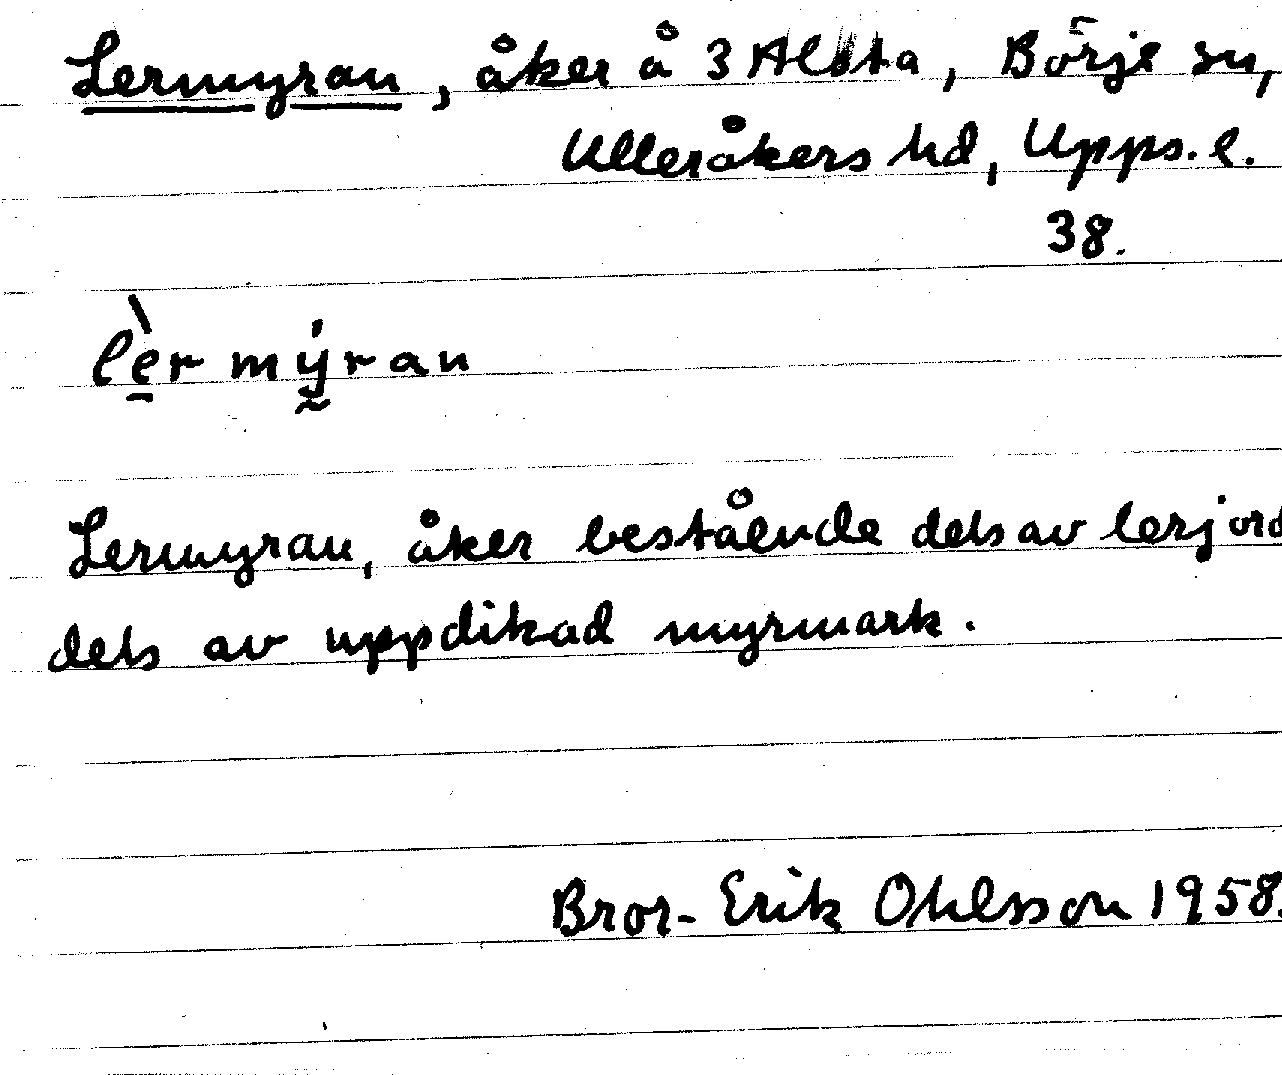 Lermyran, åker å 3 Altsta, Börje sn,
Ulleråkers hd, Upps. l.
38.
lèr mýran
Lermyran, åker bestående dels av lerjord
dels av uppdikad myrmark.
Bror-Erik Ohlsson 1958.